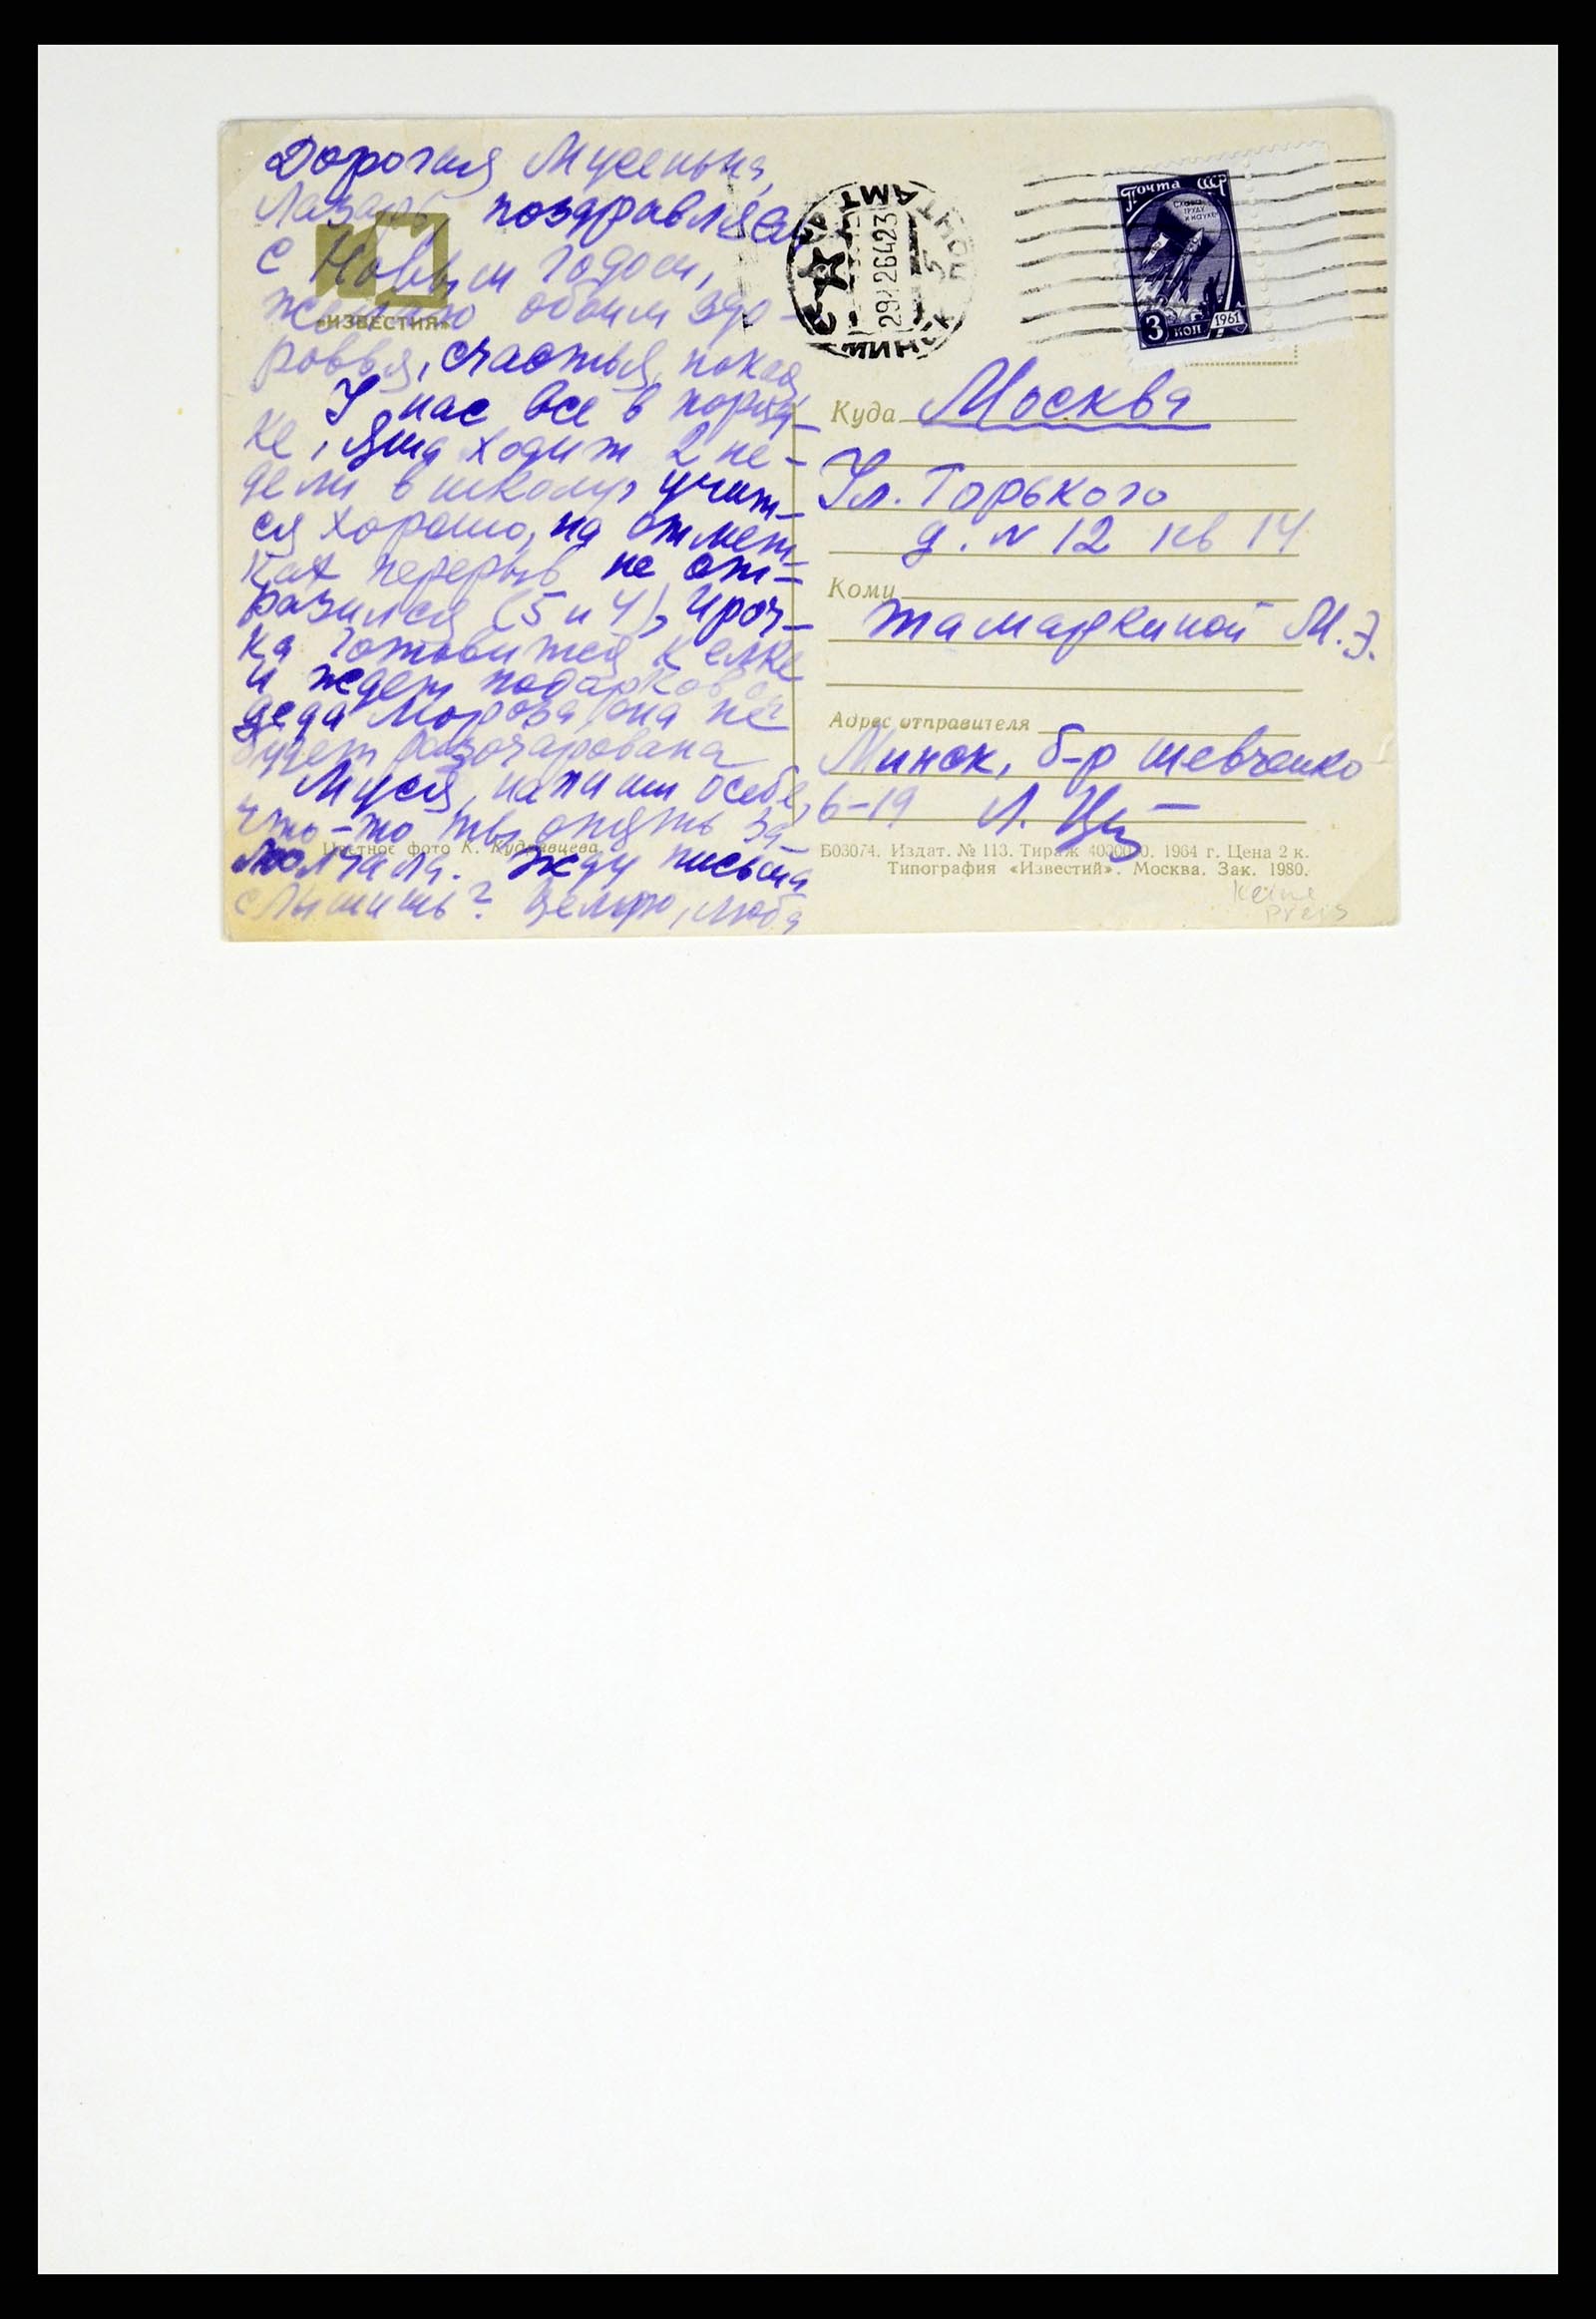 Дорогая Мусенька,
Лазарь, поздравляю
с Новым годом,
желаю обоим здо-
ровья, счастья, покоя
У нас все в поряд-
ке, Яша ходит 2 не-
дели в школу, учит-
ся хорошо, на отмет-
ках перерыв не от-
разился (5 и 4), Ироч-
ка готовится к елке
и ждет подарков от
деда Мороза, она не
будет разочарована
Муся, напиши о себе,
что-то ты опять за-
молчала. Жду письма
слышишь? Целую, Люба
«ИЗВЕСТИЯ»
Цветное фото К. Кудрявцева
МИНСК
ПОЧТАМТ
Почта СССР
СЛАВА
ТРУДУ
И НАУКЕ
3 коп 1961
Куда Москва
Ул. Горького
д. N 12 кв 14
Кому
Тамаркиной М.Э.
Адрес отправителя
Минск, б-р Шевченко
6-19
Б03074. Издат. № 113. Тираж 4000000. 1964 г. Цена 2 к.
Типография «Известий». Москва. Зак. 1980.
Keine
Preis